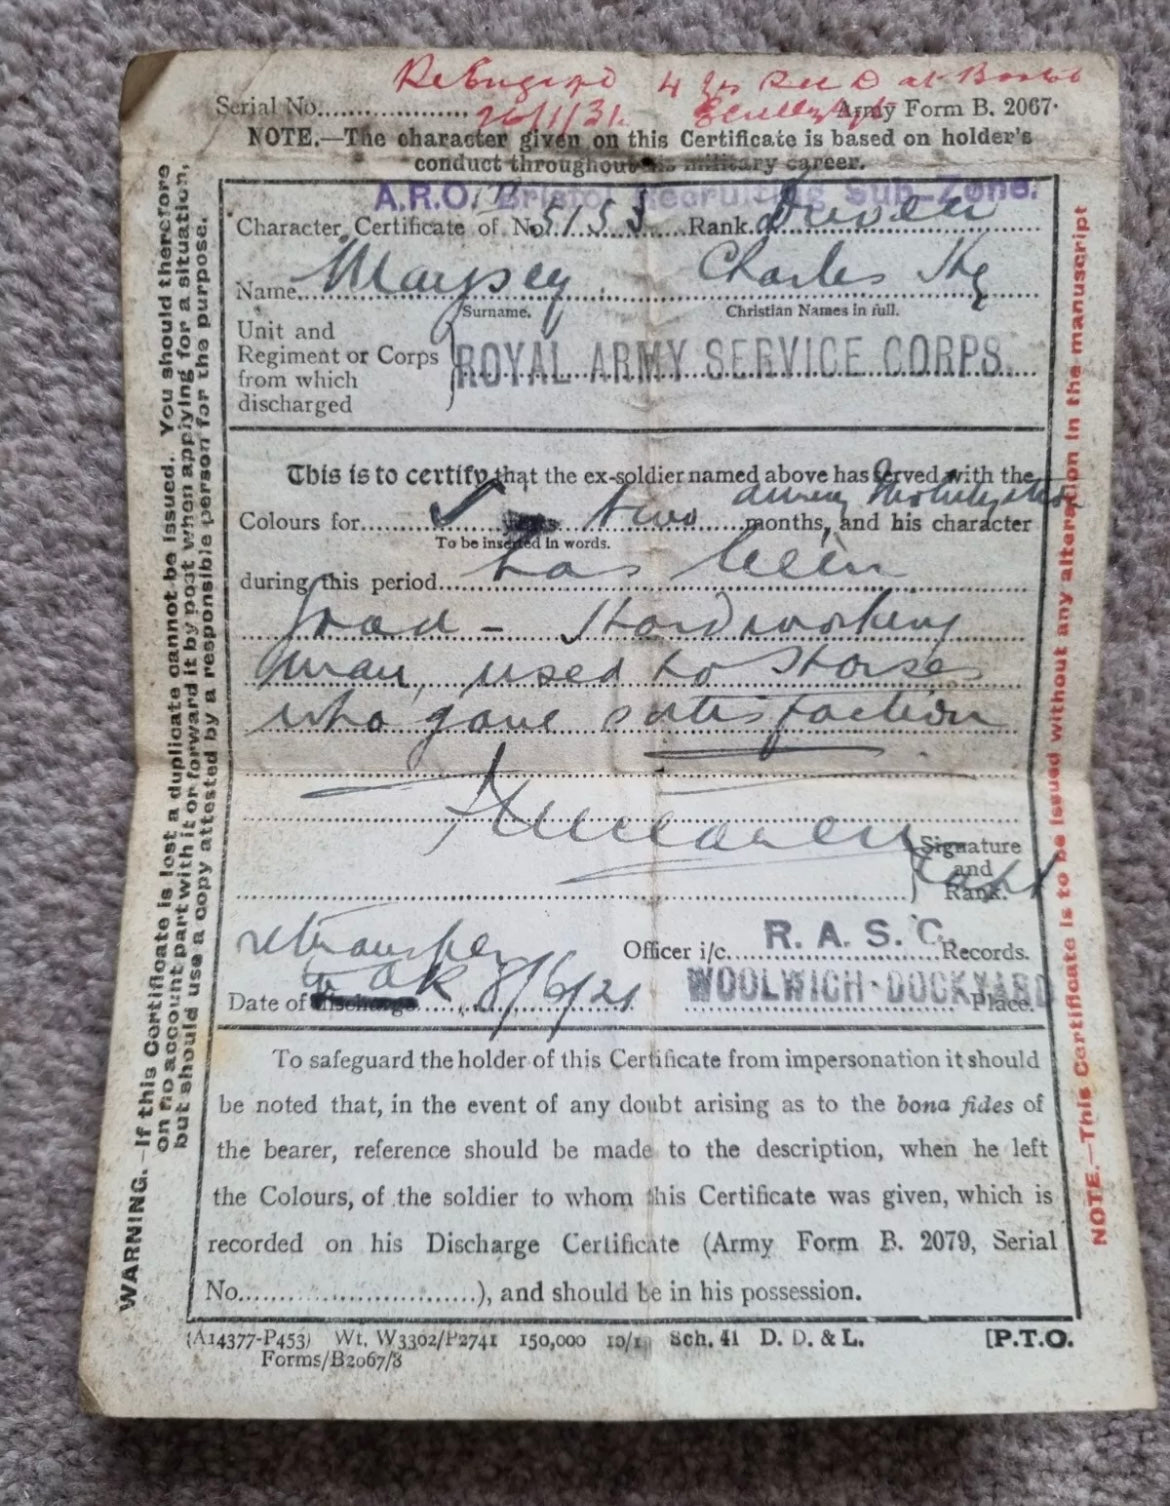 4 at
Serial No. 26/1/31. Army Form B. 2067.
NOTE.—The character given on this Certificate is based on holder's
conduct throughout his military career.
A.R.O. Bristol Recruiting Sub-Zone.
Character Certificate of No. 5153 Rank. Driver
Name Maypsey Charles Hy
Surname. Christian Names in full.
Unit and
Regiment or Corps ROYAL ARMY SERVICE CORPS.
from which
discharged
This is to certify that the ex-soldier named above has served with the
during Mobilization
Colours for two months, and his character
To be inserted in words.
during this period has been
good - Hardworking
man, used to Horses
who gave satisfaction
Signature
and
Rank.
Capt
retransfer
Officer i/c R. A. S. C. Records.
to
Date of discharge 8/6/21 WOOLWICH·DOCKYARD Place.
To safeguard the holder of this Certificate from impersonation it should
be noted that, in the event of any doubt arising as to the bona fides of
the bearer, reference should be made to the description, when he left
the Colours, of the soldier to whom this Certificate was given, which is
recorded on his Discharge Certificate (Army Form B. 2079, Serial
No. ), and should be in his possession.
(A14377-P453) Wt. W3302/P2741 150,000 10/1 Sch. 41 D. D. & L. [P.T.O.
Forms/B2067/8
WARNING.—If this Certificate is lost a duplicate cannot be issued. You should therefore
on no account part with it or forward it by post when applying for a situation,
but should use a copy attested by a responsible person for the purpose.
NOTE.—This Certificate is to be issued without any alteration in the manuscript